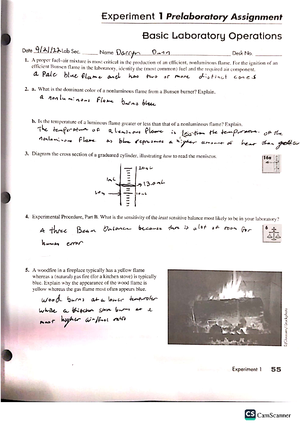 Experiment 1 Prelaboratory Assignment
Basic Laboratory Operations
Date Lab Sec. Name Desk No.
1. A proper fuel-air mixture is most critical in the production of an efficient, nonluminous flame. For the ignition of an
efficient Bunsen flame in the laboratory, identify the (most common) fuel and the required air component.
a Pale blue flame and has two or more distinct cones
2. a. What is the dominant color of a nonluminous flame from a Bunsen burner? Explain.
a nonluminous flame burns blue
b. Is the temperature of a luminous flame greater or less than that of a nonluminous flame? Explain.
The temperature of a luminous flame is less than the temperature of the
nonluminous flame as blue represents a higher amount of heat than yellow
3. Diagram the cross section of a graduated cylinder, illustrating how to read the meniscus.
mL
13.0 mL
4. Experimental Procedure, Part B. What is the sensitivity of the least sensitive balance most likely to be in your laboratory?
A three Beam Balance because there is a lot of room for
human error
5. A woodfire in a fireplace typically has a yellow flame
whereas a (natural) gas fire (for a kitchen stove) is typically
blue. Explain why the appearance of the wood flame is
yellow whereas the gas flame most often appears blue.
Wood burns at a lower temperature
while a kitchen stove burns at a
much higher air/fuel ratio
Experiment 1 55
CS CamScanner